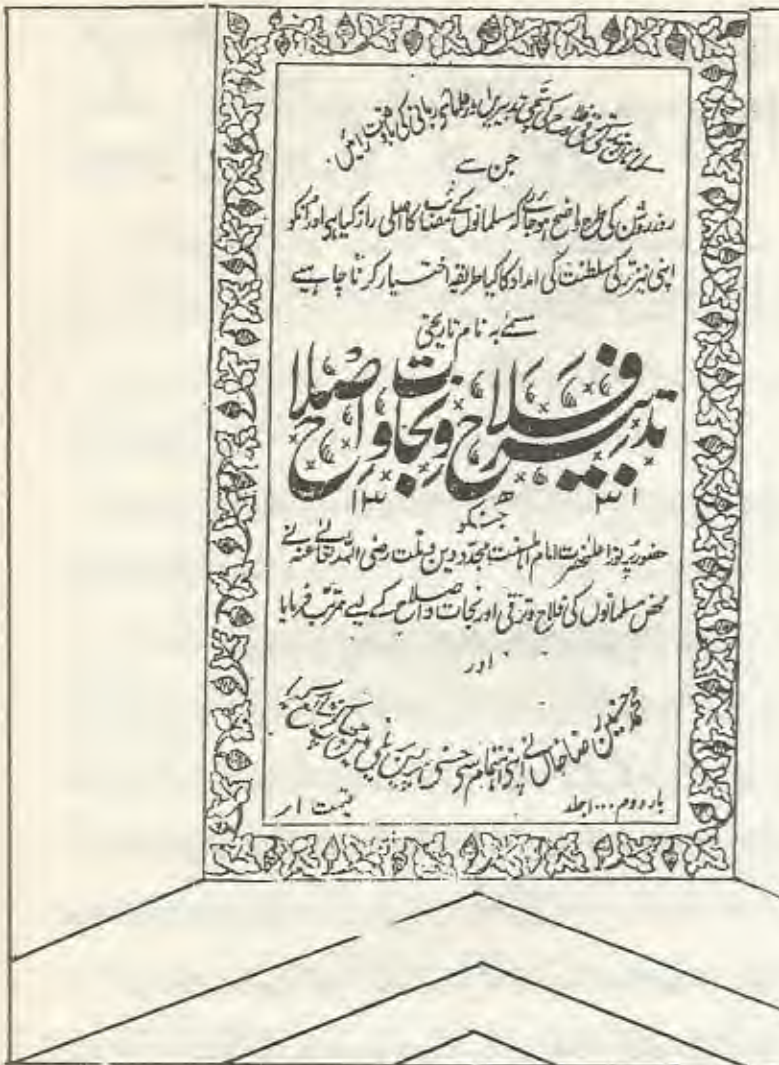 کی سچی تدبیریں
جن سے
روز روشن کی طرح واضح ہوجائے کہ مسلمانوں کے مصائب کا اصلی راز کیا ہی اور انکو
اپنی نیز ترکی سلطنت کی امداد کا کیا طریقہ اختیار کرنا چاہیے
مسمےٰ بہ نام تاریخی
تدبیر فلاح و نجات و اصلاح
۱۳ ھ ۳۱
جسکو
حضور پرنور اعلیٰحضرت امام اہلسنت مجدد دین و ملت رضی اللہ تعالےٰ عنہ نے
محض مسلمانوں کی فلاح و ترقی اور نجات و اصلاح کے لیے مرتب فرمایا
اور
حسنین رضا خاں نے اپنے اہتمام سے حسنی پریس بریلی میں
بار دوم ۱۰۰۰ جلد
قیمت ۱ر